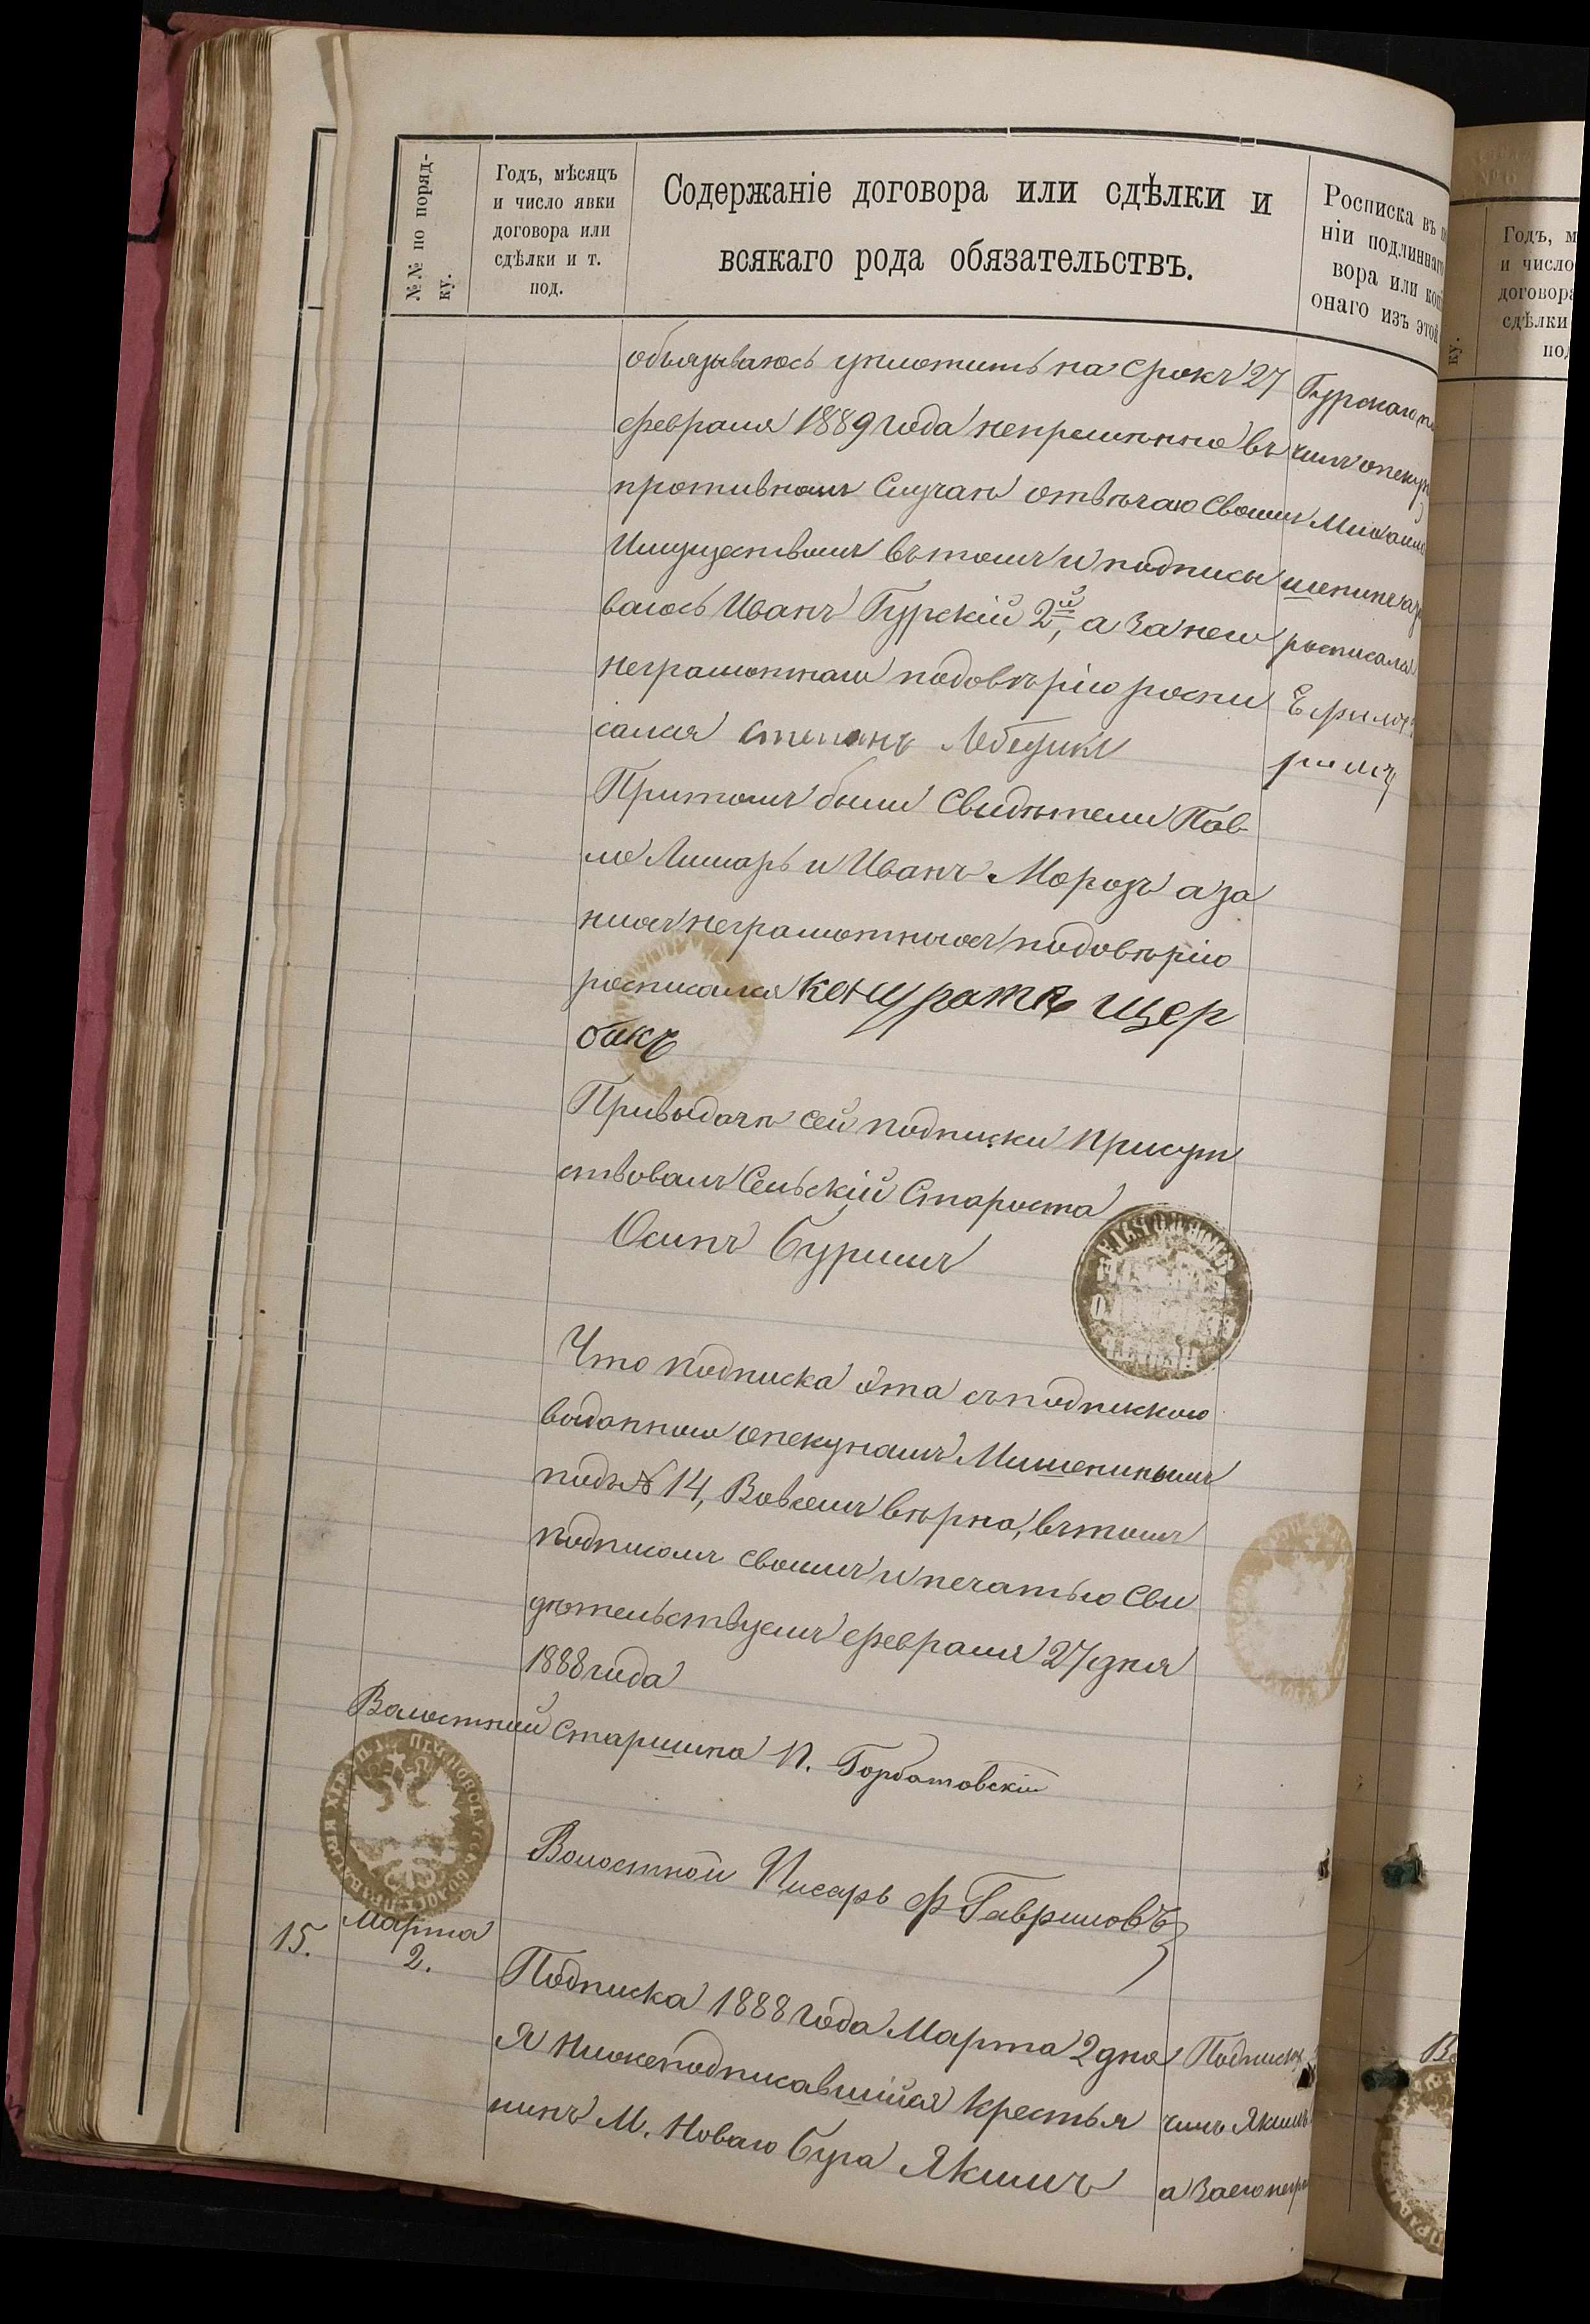 №№ по поряд-
ку.
Годъ, мѣсяцъ
и число явки
договора или
сдѣлки и т.
под.
Содержаніе договора или сдѣлки и
всякаго рода обязательствъ.
Росписка въ
ніи подлиннаго
вора или
онаго изъ этой
обязываюсь уплотить на срокъ 27
февраля 1889 года непремѣнно въ
противномъ случаи отвѣчаю своимъ
имуществомъ вътомъ и подписы
ваюсь Иванъ Гурскій 2й, а за него
неграмотнаго подовѣрію роспи
сался степанъ Лебедикъ
Притомъ были свидѣтели Пав
ло Лимарь и Иванъ Морозъ а за
нихъ неграмотныхъ подовѣрію
росписался кондратъ щер
бакъ
Гурскаго
росписался
Привыдачи сей подписки присут
ствовалъ Сельскій Староста
Осипъ Буримъ
Что подписка эта съподпискою
выданною опекунамъ Мишенинымъ
подъ № 14, вовсемъ вѣрно, вътомъ
подписомъ своимъ и печатью сви
дѣтельствуемъ февраля 27 дня
1888 года
Волостной Старшина П. Горбатовскій
Волостной Писарь Ф Гавриловъ
15.
Марта
2.
Подписка 1888 года Марта 2 дня
Я нижеподписавшійся крестья
нинъ М. Новаго Буга Якимъ
Подписку
чилъ Якимъ
а Заего
Годъ, м
и число
договора
сдѣлки
под
ку.